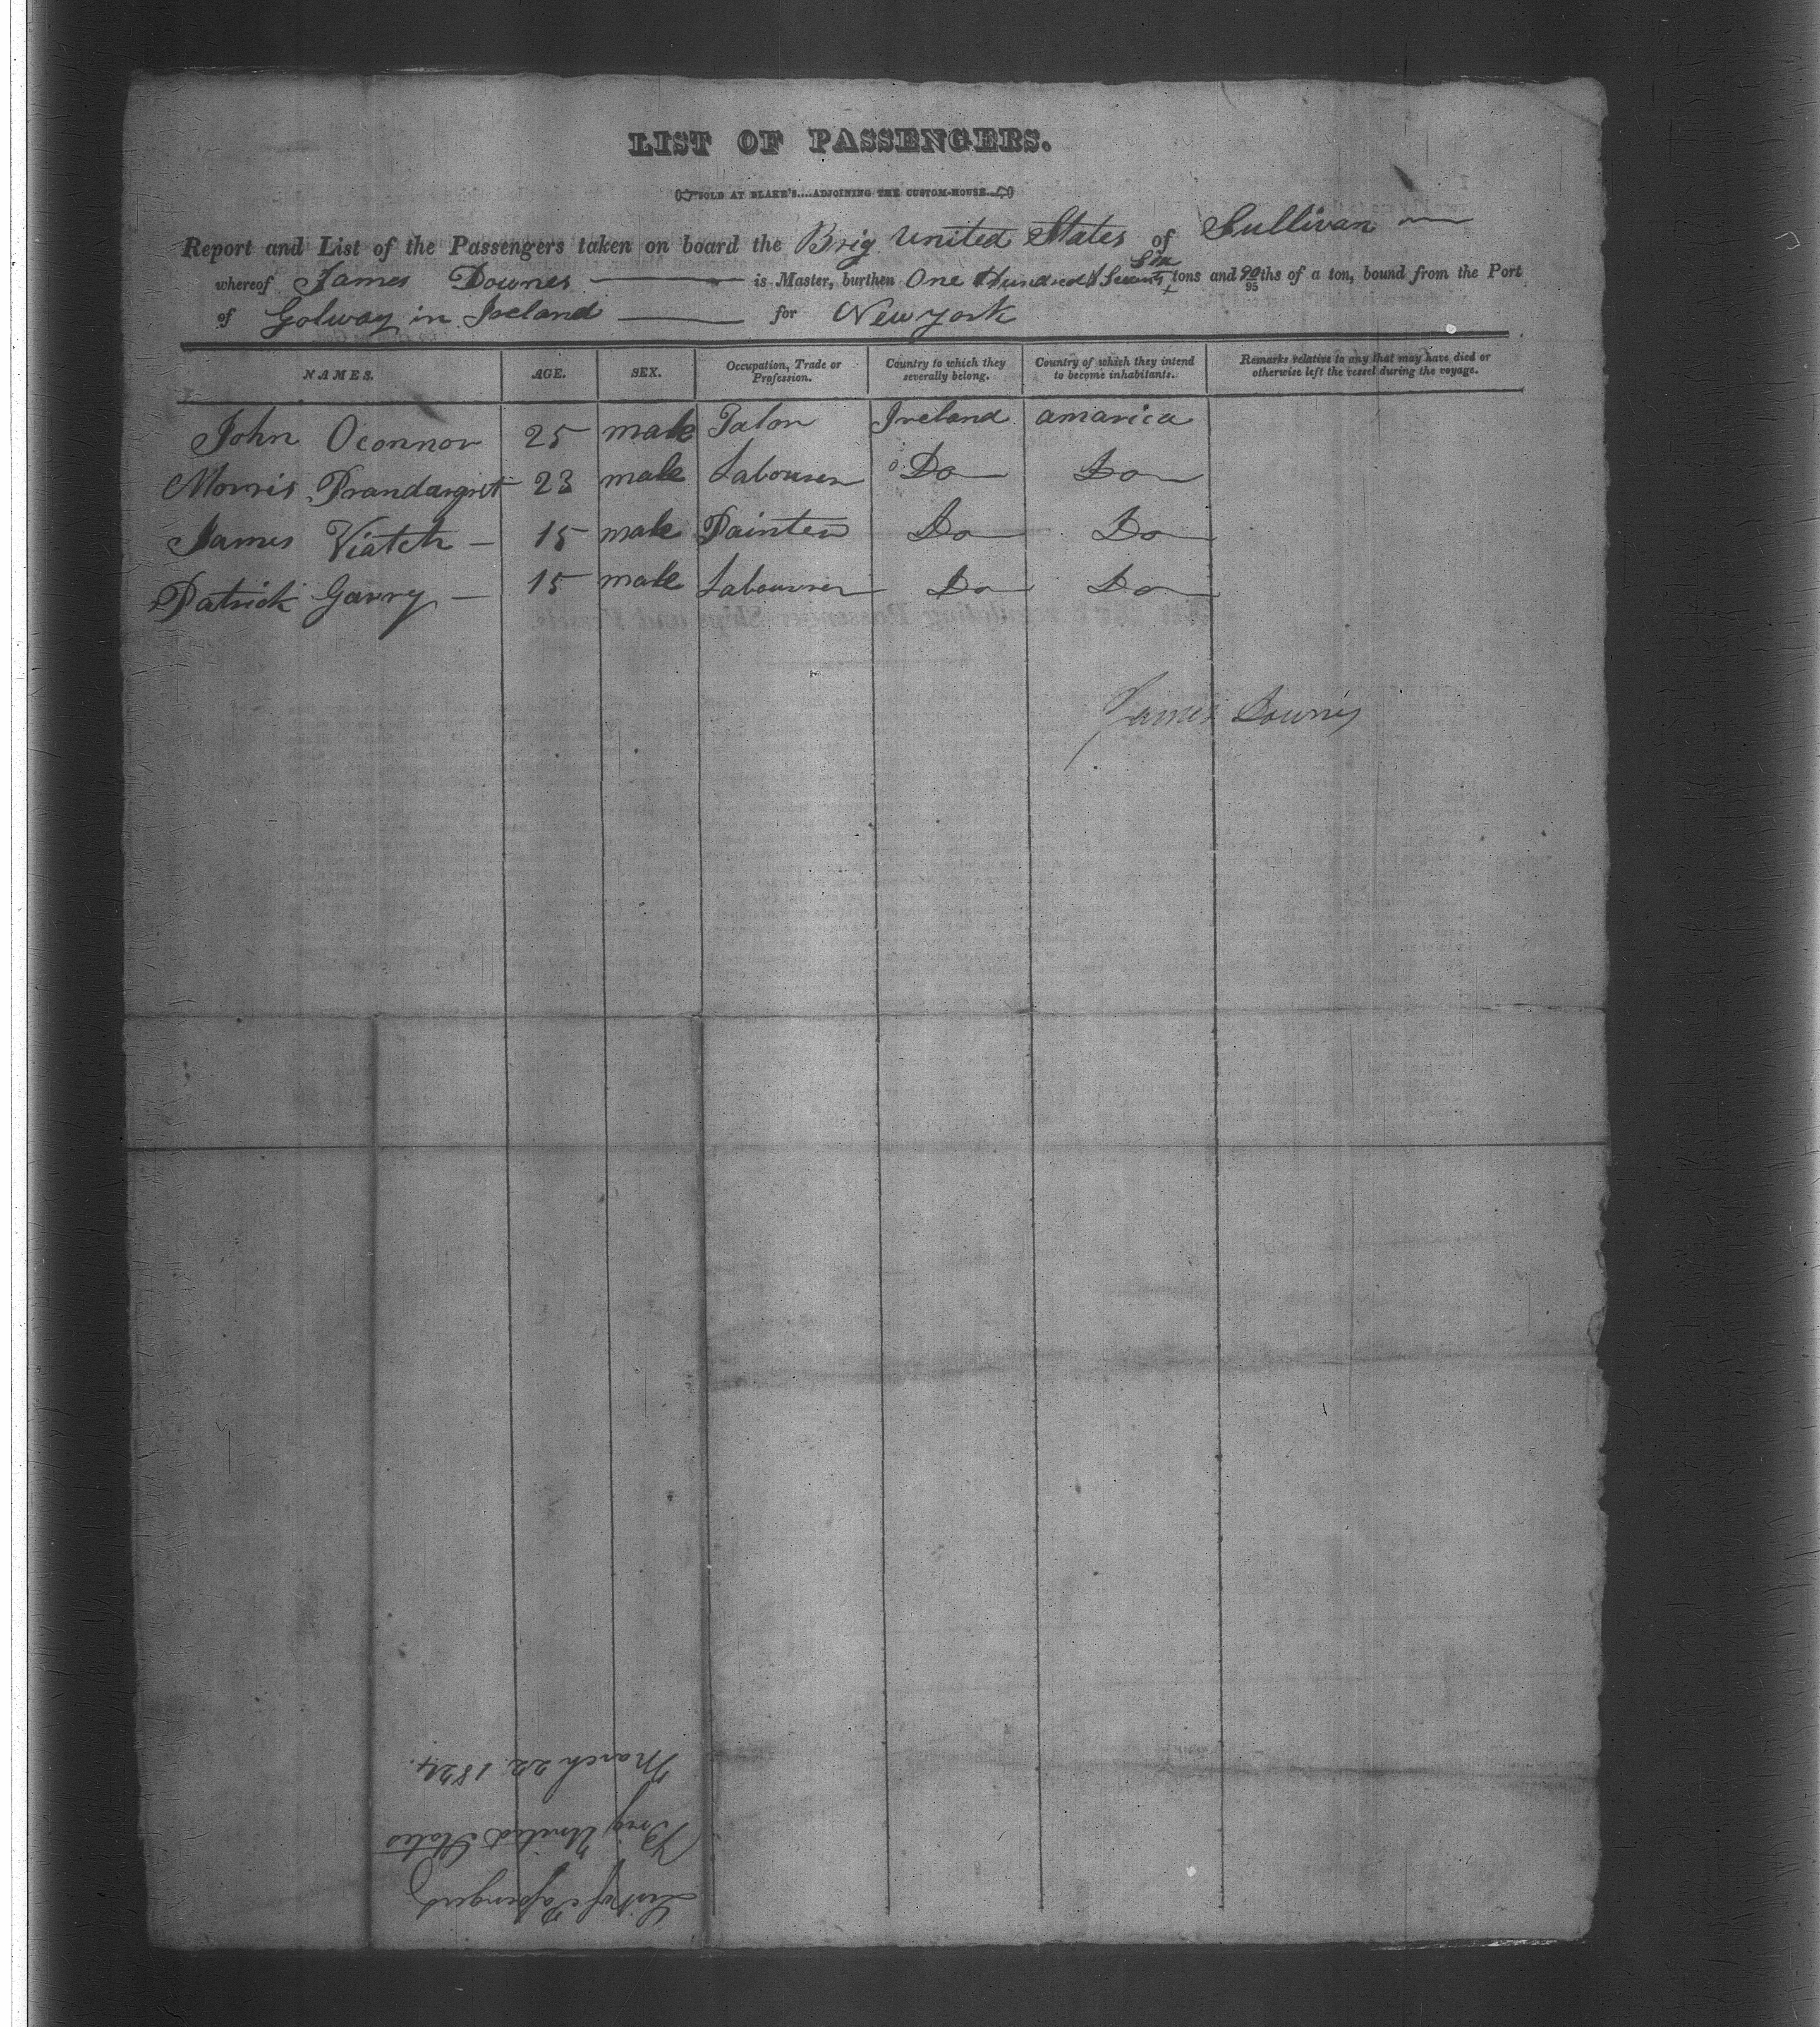 LIST OF PASSENGERS.
SOLD AT BLAKE'S....ADJOINING THE CUSTOM-HOUSE.
Report and List of the Passengers taken on board the Brig United States of Sullivan
whereof James Downes is Master, burthen One Hundred & Seventy Six tons and 90/95 ths of a ton, bound from the Port
of Golway in Ireland for New york
NAMES. AGE. SEX. Occupation, Trade or Profession. Country to which they severally belong. Country of which they intend to become inhabitants. Remarks relative to any that may have died or otherwise left the vessel during the voyage.
John Oconnor 25 male Talor Ireland amarica
Morris Prandargret 23 male Labourer Do Do
James Viatch 15 male Painter Do Do
Patrick Garry 15 male Labourer Do Do
James Downes
List of Passengers
Brig United States
March 22 1824.